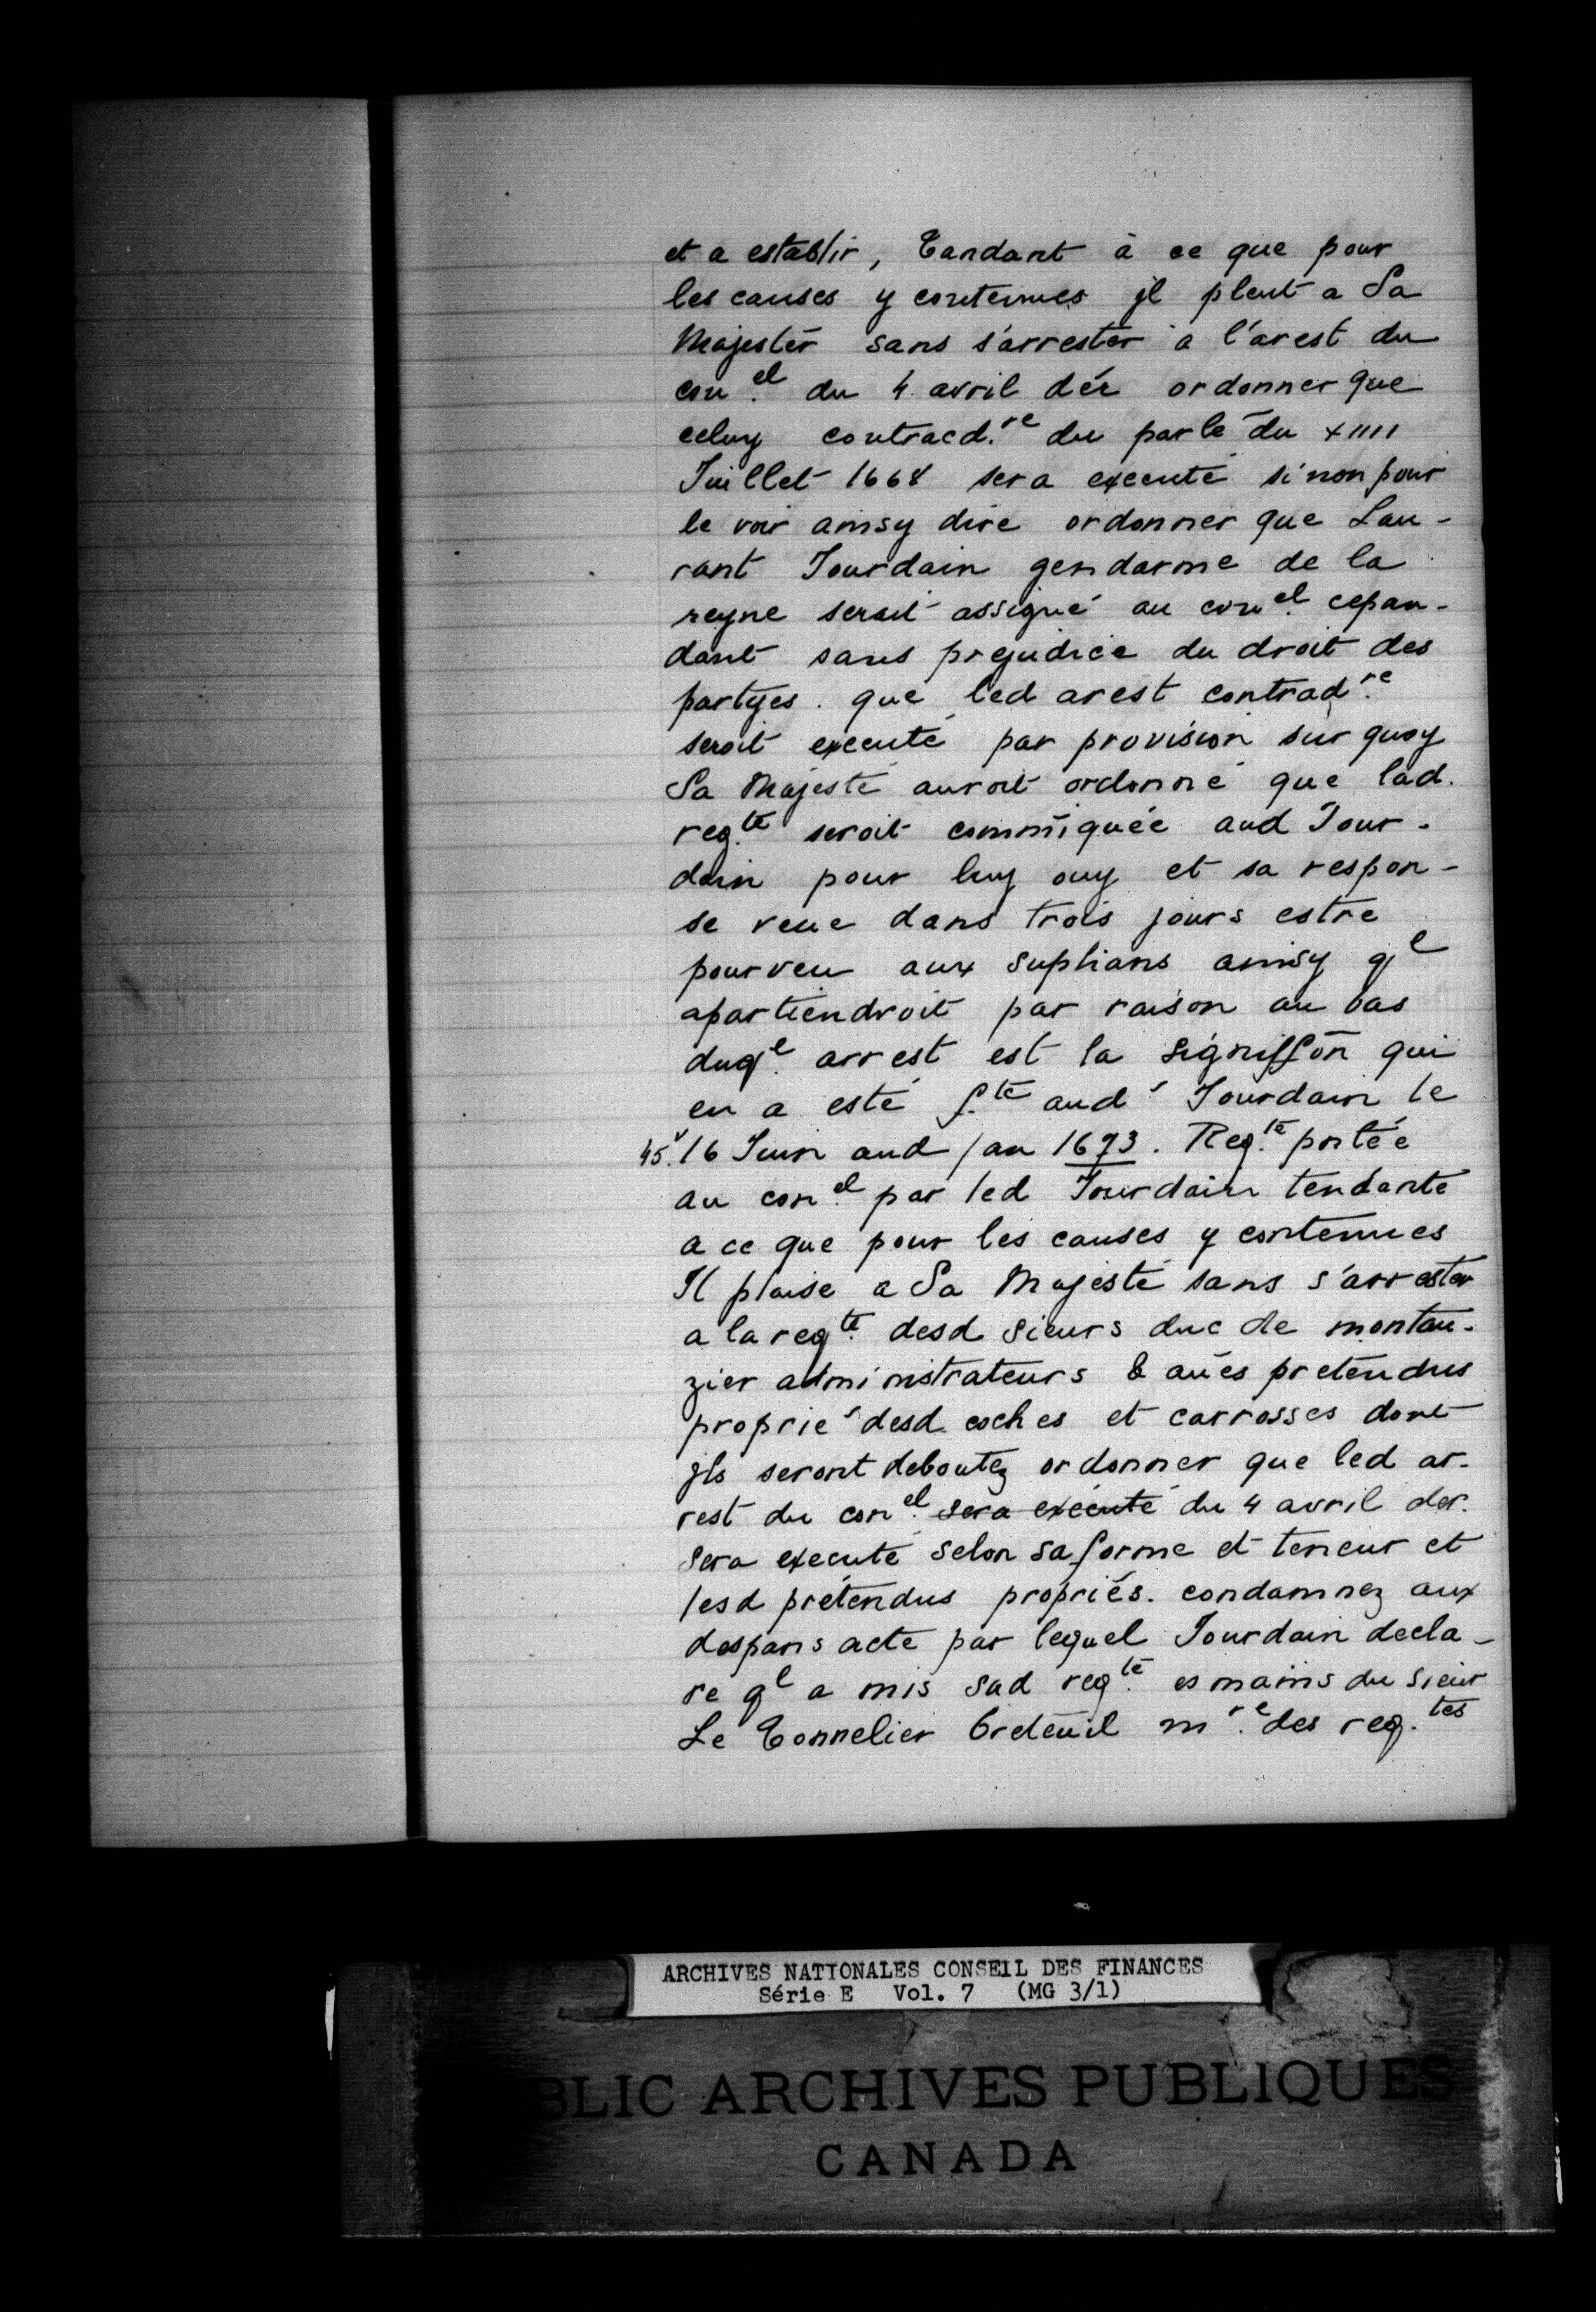 et a establir, Tandant à ce que pour
les causes y contenues jl pleut a Sa
Majestér sans s'arrester a l'arest du
con.el du 4 avril dér ordonner que
celuy contracd.re du parle du XIIII
Juillet 1668 sera executé si non pour
le voir ainsy dire ordonner que Lau-
rant Jourdain gendarme de la
reyne serait assigné au con.el cepan-
dant sans prejudice du droit des
partyes. que led arest contrad.re
seroit executé par provision sur quoy
Sa Majesté auroit ordonné que lad.
req.te seroit comm̄iquée aud Jour-
dain pour luy ouy et sa respon-
se veue dans trois jours estre
pourveu aux suplians ainsy q.l
apartiendroit par raison au bas
duq.l arrest est la signiffōn qui
en a esté f.te aud s Jourdain le
45.v 16 Juin aud / an 1673. Req.te portée
au con.el par led Jourdain tendante
a ce que pour les causes y contenues
Il plaise a Sa Majesté sans s'arrester
a la req.te desd sieurs duc de montau-
zier administrateurs & aūes pretendus
proprie s desd coches et carrosses dont
jls seront deboutez ordonner que led ar-
rest du con.el sera executé du 4 avril der.
sera executé selon sa forme et teneur et
lesd prétendus propriés. condamnez aux
despans acte par lequel Jourdain decla-
re q.l a mis sad req.te es mains du sieur
Le Tonnelier breteuil m.re des req.tes
ARCHIVES NATIONALES CONSEIL DES FINANCES
Série E Vol. 7 (MG 3/1)
BLIC ARCHIVES PUBLIQUES
CANADA